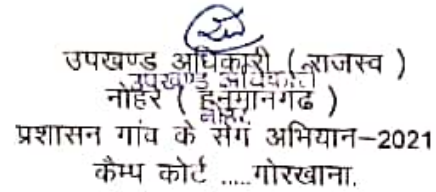 उपखण्ड अधिकारी ( राजस्व )
उपखण्ड अधिकारी
नोहर ( हनुमानगढ )
नोहर
प्रशासन गांव के संग अभियान–2021
कैम्प कोर्ट .....गोरखाना.